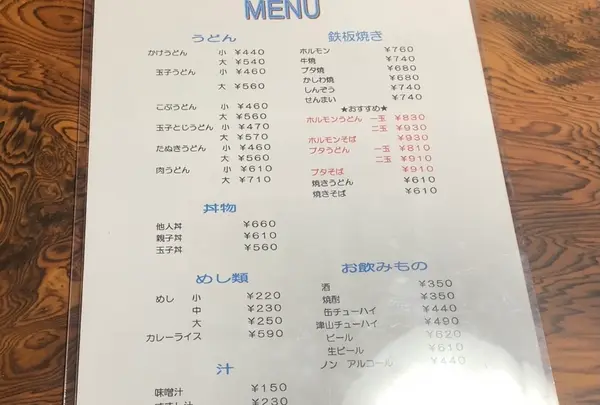 MENU
うどん
かけうどん 小 ¥440
大 ¥540
玉子うどん 小 ¥460
大 ¥560
こぶうどん 小 ¥460
玉子とじうどん 小 ¥470
大 ¥570
たぬきうどん 小 ¥460
大 ¥560
肉うどん 小 ¥610
大 ¥710
丼物
他人丼 ¥660
親子丼 ¥610
玉子丼 ¥560
めし類
めし 小 ¥220
中 ¥230
大 ¥250
カレーライス ¥590
汁
味噌汁 ¥150
¥230
鉄板焼き
ホルモン ¥760
牛焼 ¥740
ブタ焼 ¥680
かしわ焼 ¥680
しんぞう ¥740
せんまい ¥740
★おすすめ★
ホルモンうどん 一玉 ¥830
二玉 ¥930
ホルモンそば ¥930
ブタうどん 一玉 ¥810
二玉 ¥910
ブタそば ¥910
焼きうどん ¥610
焼きそば ¥610
お飲みもの
酒 ¥350
焼酎 ¥350
缶チューハイ ¥440
津山チューハイ ¥490
ビール ¥620
生ビール ¥610
ノン アルコール ¥440